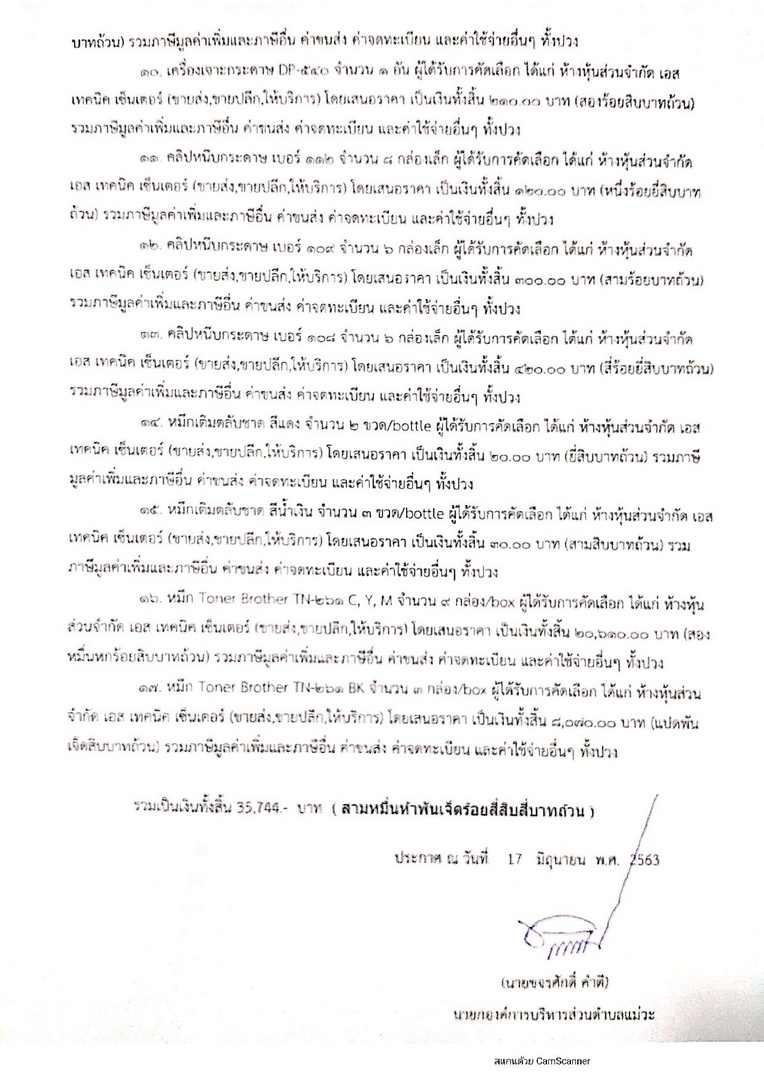 บาทถ้วน) รวมภาษีมูลค่าเพิ่มและภาษีอื่น ค่าขนส่ง ค่าจดทะเบียน และค่าใช้จ่ายอื่นๆ ทั้งปวง
๑๐. เครื่องเจาะกระดาษ DP-๕๔๐ จำนวน ๑ อัน ผู้ได้รับการคัดเลือก ได้แก่ ห้างหุ้นส่วนจำกัด เอส
เทคนิค เซ็นเตอร์ (ขายส่ง,ขายปลีก,ให้บริการ) โดยเสนอราคา เป็นเงินทั้งสิ้น ๒๑๐.๐๐ บาท (สองร้อยสิบบาทถ้วน)
รวมภาษีมูลค่าเพิ่มและภาษีอื่น ค่าขนส่ง ค่าจดทะเบียน และค่าใช้จ่ายอื่นๆ ทั้งปวง
๑๑. คลิปหนีบกระดาษ เบอร์ ๑๑๒ จำนวน ๘ กล่องเล็ก ผู้ได้รับการคัดเลือก ได้แก่ ห้างหุ้นส่วนจำกัด
เอส เทคนิค เซ็นเตอร์ (ขายส่ง,ขายปลีก,ให้บริการ) โดยเสนอราคา เป็นเงินทั้งสิ้น ๑๒๐.๐๐ บาท (หนึ่งร้อยยี่สิบบาท
ถ้วน) รวมภาษีมูลค่าเพิ่มและภาษีอื่น ค่าขนส่ง ค่าจดทะเบียน และค่าใช้จ่ายอื่นๆ ทั้งปวง
๑๒. คลิปหนีบกระดาษ เบอร์ ๑๐๙ จำนวน ๖ กล่องเล็ก ผู้ได้รับการคัดเลือก ได้แก่ ห้างหุ้นส่วนจำกัด
เอส เทคนิค เซ็นเตอร์ (ขายส่ง,ขายปลีก,ให้บริการ) โดยเสนอราคา เป็นเงินทั้งสิ้น ๓๐๐.๐๐ บาท (สามร้อยบาทถ้วน)
รวมภาษีมูลค่าเพิ่มและภาษีอื่น ค่าขนส่ง ค่าจดทะเบียน และค่าใช้จ่ายอื่นๆ ทั้งปวง
๑๓. คลิปหนีบกระดาษ เบอร์ ๑๐๘ จำนวน ๖ กล่องเล็ก ผู้ได้รับการคัดเลือก ได้แก่ ห้างหุ้นส่วนจำกัด
เอส เทคนิค เซ็นเตอร์ (ขายส่ง,ขายปลีก,ให้บริการ) โดยเสนอราคา เป็นเงินทั้งสิ้น ๔๒๐.๐๐ บาท (สี่ร้อยยี่สิบบาทถ้วน)
รวมภาษีมูลค่าเพิ่มและภาษีอื่น ค่าขนส่ง ค่าจดทะเบียน และค่าใช้จ่ายอื่นๆ ทั้งปวง
๑๔. หมึกเติมตลับชาด สีแดง จำนวน ๒ ขวด/bottle ผู้ได้รับการคัดเลือก ได้แก่ ห้างหุ้นส่วนจำกัด เอส
เทคนิค เซ็นเตอร์ (ขายส่ง,ขายปลีก,ให้บริการ) โดยเสนอราคา เป็นเงินทั้งสิ้น ๒๐.๐๐ บาท (ยี่สิบบาทถ้วน) รวมภาษี
มูลค่าเพิ่มและภาษีอื่น ค่าขนส่ง ค่าจดทะเบียน และค่าใช้จ่ายอื่นๆ ทั้งปวง
๑๕. หมึกเติมตลับชาด สีน้ำเงิน จำนวน ๓ ขวด/bottle ผู้ได้รับการคัดเลือก ได้แก่ ห้างหุ้นส่วนจำกัด เอส
เทคนิค เซ็นเตอร์ (ขายส่ง,ขายปลีก,ให้บริการ) โดยเสนอราคา เป็นเงินทั้งสิ้น ๓๐.๐๐ บาท (สามสิบบาทถ้วน) รวม
ภาษีมูลค่าเพิ่มและภาษีอื่น ค่าขนส่ง ค่าจดทะเบียน และค่าใช้จ่ายอื่นๆ ทั้งปวง
๑๖. หมึก Toner Brother TN-๒๖๑ C, Y, M จำนวน ๙ กล่อง/box ผู้ได้รับการคัดเลือก ได้แก่ ห้างหุ้น
ส่วนจำกัด เอส เทคนิค เซ็นเตอร์ (ขายส่ง,ขายปลีก,ให้บริการ) โดยเสนอราคา เป็นเงินทั้งสิ้น ๒๐,๖๑๐.๐๐ บาท (สอง
หมื่นหกร้อยสิบบาทถ้วน) รวมภาษีมูลค่าเพิ่มและภาษีอื่น ค่าขนส่ง ค่าจดทะเบียน และค่าใช้จ่ายอื่นๆ ทั้งปวง
๑๗. หมึก Toner Brother TN-๒๖๑ BK จำนวน ๓ กล่อง/box ผู้ได้รับการคัดเลือก ได้แก่ ห้างหุ้นส่วน
จำกัด เอส เทคนิค เซ็นเตอร์ (ขายส่ง,ขายปลีก,ให้บริการ) โดยเสนอราคา เป็นเงินทั้งสิ้น ๘,๐๗๐.๐๐ บาท (แปดพัน
เจ็ดสิบบาทถ้วน) รวมภาษีมูลค่าเพิ่มและภาษีอื่น ค่าขนส่ง ค่าจดทะเบียน และค่าใช้จ่ายอื่นๆ ทั้งปวง
รวมเป็นเงินทั้งสิ้น 35,744.- บาท ( สามหมื่นห้าพันเจ็ดร้อยสี่สิบสี่บาทถ้วน )
ประกาศ ณ วันที่ 17 มิถุนายน พ.ศ. 2563
(นายขจรศักดิ์ คำดี)
นายกองค์การบริหารส่วนตำบลแม่วะ
สแกนด้วย CamScanner